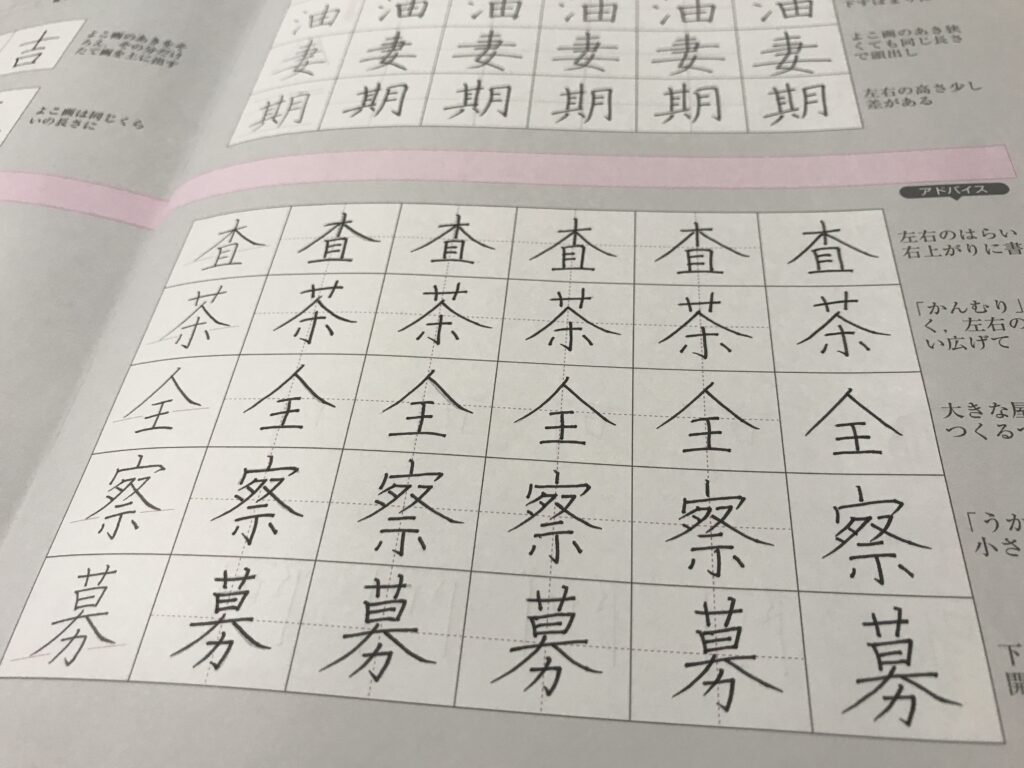 吉
よこ画は同じくら
いの長さに
油 油 油 油 油 油
妻 妻 妻 妻 妻 妻
よこ画のあき狭
くても同じ長さ
で頭出し
期 期 期 期 期 期
左右の高さ少し
差がある
アドバイス
査 査 査 査 査 査
左右のはらい
右上がりに書
茶 茶 茶 茶 茶 茶
「かんむり」
く，左右の
い広げて
全 全 全 全 全 全
大きな屋
つくるつ
察 察 察 察 察 察
「うか
小さ
募 募 募 募 募 募
下
開